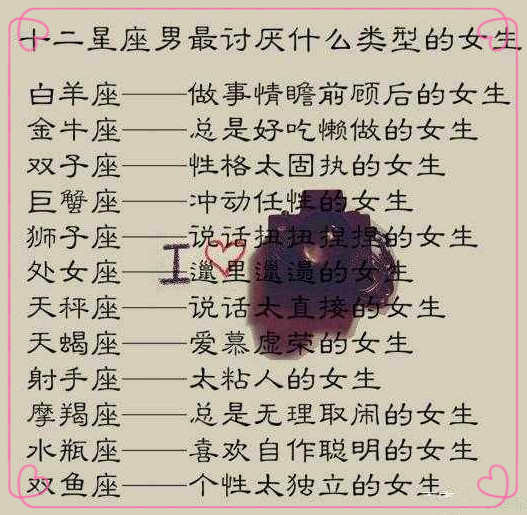 十二星座男最讨厌什么类型的女生
白羊座——做事情瞻前顾后的女生
金牛座——总是好吃懒做的女生
双子座——性格太固执的女生
巨蟹座——冲动任性的女生
狮子座——说话扭扭捏捏的女生
I
处女座——邋里邋遢的女生
天秤座——说话太直接的女生
天蝎座——爱慕虚荣的女生
射手座——太粘人的女生
摩羯座——总是无理取闹的女生
水瓶座——喜欢自作聪明的女生
双鱼座——个性太独立的女生